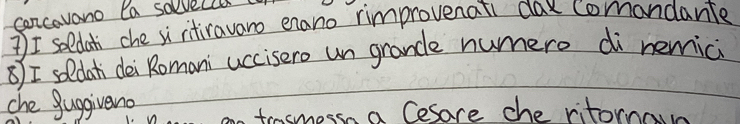 cercavano la salvezza
7) I soldati che si ritiravano erano rimproverati dal comandante
8) I soldati dei Romani uccisero un grande numero di nemici
che fuggivano
trasmessa a Cesare che ritornava